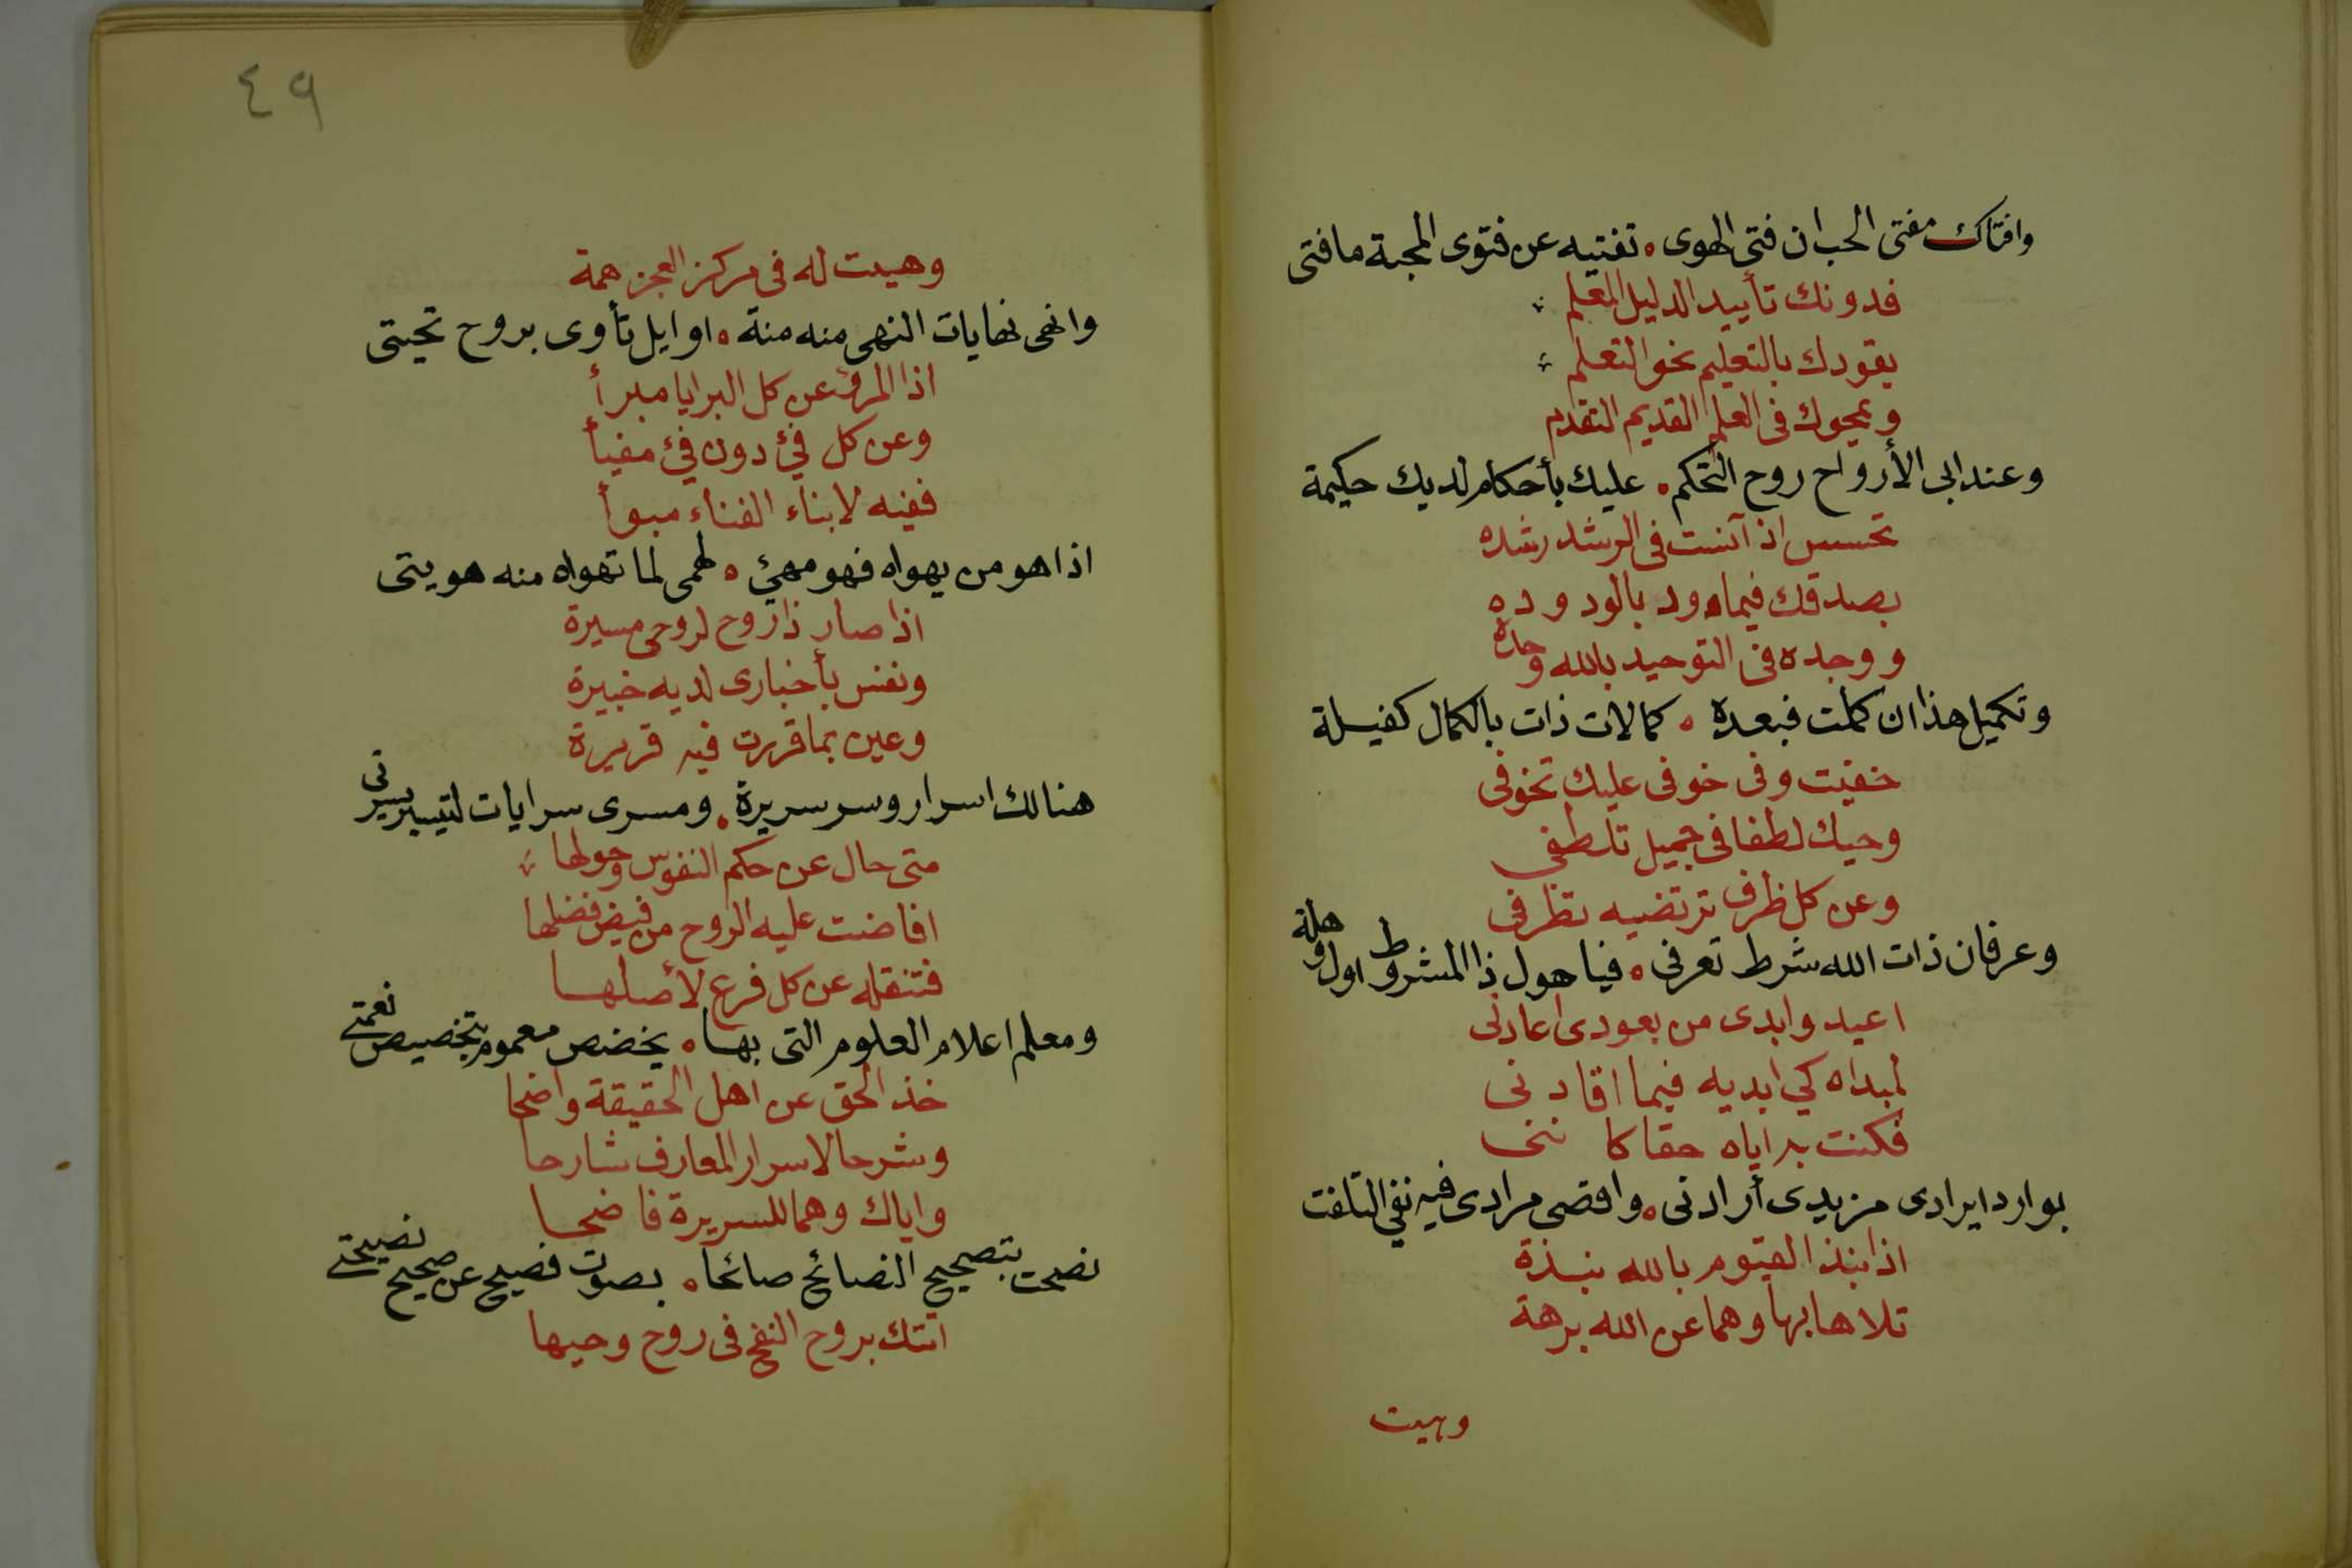 وافتاك مفتى الحب ان فتى الهوى ٥ تفتيه عن فتوى المحبة ما فتى
فدونك تأييد الدليل المعلم
يقودك بالتعليم نحو التعلم
ويمحوك فى العلم القديم التقدم
وعند ابى الأرواح روح التحكم ٥ عليك بأحكام لديك حكيمة
تحسس اذ آنست فى الرشد رشده
بصدقك فيما ود بالود وده
ووجده فى التوحيد بالله وحده
وتكميل هذا ان كملت فبعده ٥ كمالات ذات بالكمال كفيلة
خفيت وفى خوفى عليك تخوفى
وحيك لطفا فى جميل تلطفى
وعن كل ظرف ترتضيه تظرفى
وعرفان ذات الله شرط تعرفى ٥ فيا هول ذا المشروط اول وهلة
اعيد وابدى من بعودى اعادنى
لمبداه كي ابديه فيما اقادنى
فكنت بداياه حقا كا
بوارد ايرادى مزيدى أرادنى ٥ واقصى مرادى فيه نفي التلفت
اذا نبذ القيوم بالله نبذة
تلاها بها وهما عن الله برهة
وهيت
٤٩
وهيت له فى مركز العجز همة
وانهى نهايات النهى منه منة ٥ اوايل تأوى بروح تحيتى
اذا المرؤ عن كل البرايا مبرأ
وعن كل فئ دون فئ مفيأ
ففيه لابناء الفناء مبوأ
اذا هو من يهواه فهو مهئ ٥ لهمى لما تهواه منه هويتى
اذا صار ذا روح لروحى مسيرة
ونفس بأخبارى لديه خبيرة
وعين بما قررت فيه قريرة
هنالك اسرار وسر سريرة ٥ ومسرى سرايات لتيسير يسرتى
متى حال عن حكم النفوس وحولها
افاضت عليه الروح من فيض فضلها
فتنقله عن كل فرع لأصلها
ومعلم اعلام العلوم التى بها ٥ يخصص معموم بتخصيص نعمتى
خذ الحق عن اهل الحقيقة واضحا
وشرحا لاسرار المعارف شارحا
واياك وهما للسريرة فاضحا
نصحت بتصحيح النصائح صائحا ٥ بصوت فصيح عن صحيح نصيحتى
اتتك بروح النفخ فى روح وحيها